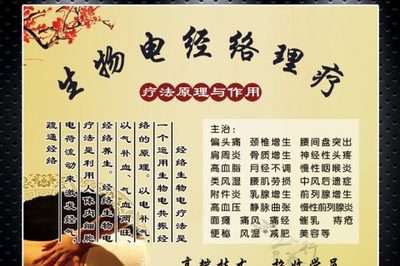 生物电经络理疗
疗法原理与作用
经络生物电疗法是
一个运用生物电共振经
络的原理。以电补气，
以气补血，气血两旺，
经络养生。经络生物电
疗法是利用人体内细胞
电荷流动来激发经气，
疏通经络
主治：
偏头痛 颈椎增生 腰间盘突出
肩周炎 骨质增生 神经性头疼
高血脂 月经不调 慢性咽喉炎
类风湿 腰肌劳损 中风后遗症
附件炎 乳腺增生 前列腺增生
高血压 静脉曲张 慢性前列腺炎
面瘫 痛风 痛经 催乳 痔疮
便秘 风湿 减肥 美容等